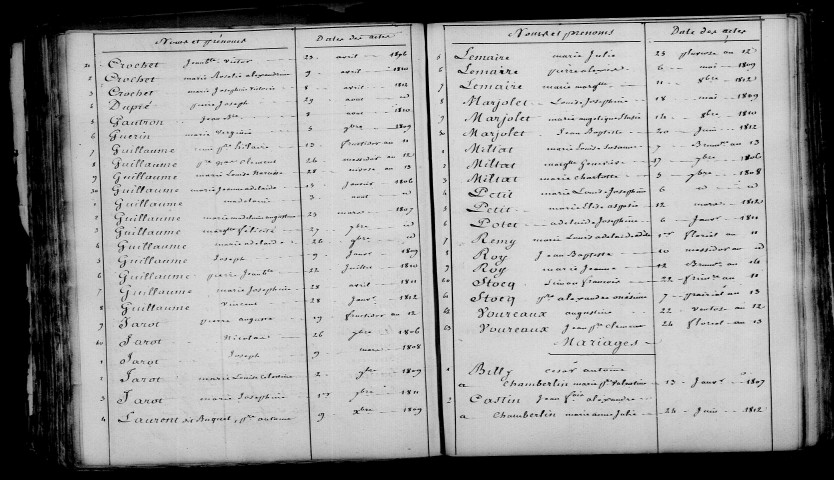 Noms et prénoms Dates des actes
Crochet Jeanbte Victor 23 avril 1806
2 Crochet marie Rosalie alexandrine 9 avril 1810
3 Crochet marie Josephine Victoire 8 avril 1812
4 Dupré pierre Joseph 29 aout id
5 Gautron Jean 8 aout 1810
6 Guerin marie Virginie 5 9bre 1809
7 Guillaume hilaire 13 fructidor an 11
8 Guillaume clement 24 messidor an 12
9 Guillaume marie Louise Narcisse 28 nivose an 13
30 Guillaume marie Jeanne adelaide 13 Janvier 1806
1 Guillaume madelaine 3 aout id
2 Guillaume marie madelaine augustine 23 mars 1807
3 Guillaume margte félicité 27 9bre id
4 Guillaume marie adelaide 26 9bre id
5 Guillaume Joseph 9 Janvr 1809
6 Guillaume pierre Jeanbte 22 Juillet 1810
7 Guillaume marie Josephine 28 avril 1811
8 Guillaume Vincent 28 Janvr 1812
9 Jarot pierre auguste 19 fructidor an 12
40 Jarot Nicolas 26 9bre 1806
1 Jarot Joseph 9 mars 1808
2 Jarot marie Louise Celestine 2 1809
3 Jarot marie Josephine 17 9bre 1811
4 Laurent dit Buquet, antoine 9 xbre 1809
Noms et prenoms Date des actes
5 Lemaire marie Julie 23 pluviose an 12
6 Lemaire pierre alexis 6 mai 1809
7 Lemaire marie margte 11 8bre 1812
8 Marjolet Louise Josephine 18 mai 1809
9 Marjolet marie angelique 14 8bre 1810
50 Marjolet Jean Baptiste 20 Juin 1812
1 Miltat marie Louise Susanne 7 Brumre an 13
2 Miltat margte Genevieve 17 9bre 1806
3 Miltat marie charlotte 3 9bre 1808
4 Petit marie Louise Josephine 6 id id
5 Petit marie Elide aspasie 12 mars 1812
6 Potet adelaide Josephine 6 Janvr 1811
7 Remy marie Louise adelaide 1er floréal an 11
8 Roy Jean Baptiste 20 messidor an id
9 Roy marie Jeanne 12 Brumre an 14
60 Stocq Simon francois 22 frimre an 11
61 Stocq alexandre onésime 7 prairial an 13
62 Voureaux augustine 22 ventose an 12
63 Voureaux Jean clement 24 floreal an 13
Mariages
1 Billy césar antoine
a Chamberlin marie Valentine 13 Janvr 1807
2 Castin Jean alexandre
a Chamberlin marie anne Julie 24 Juin 1812